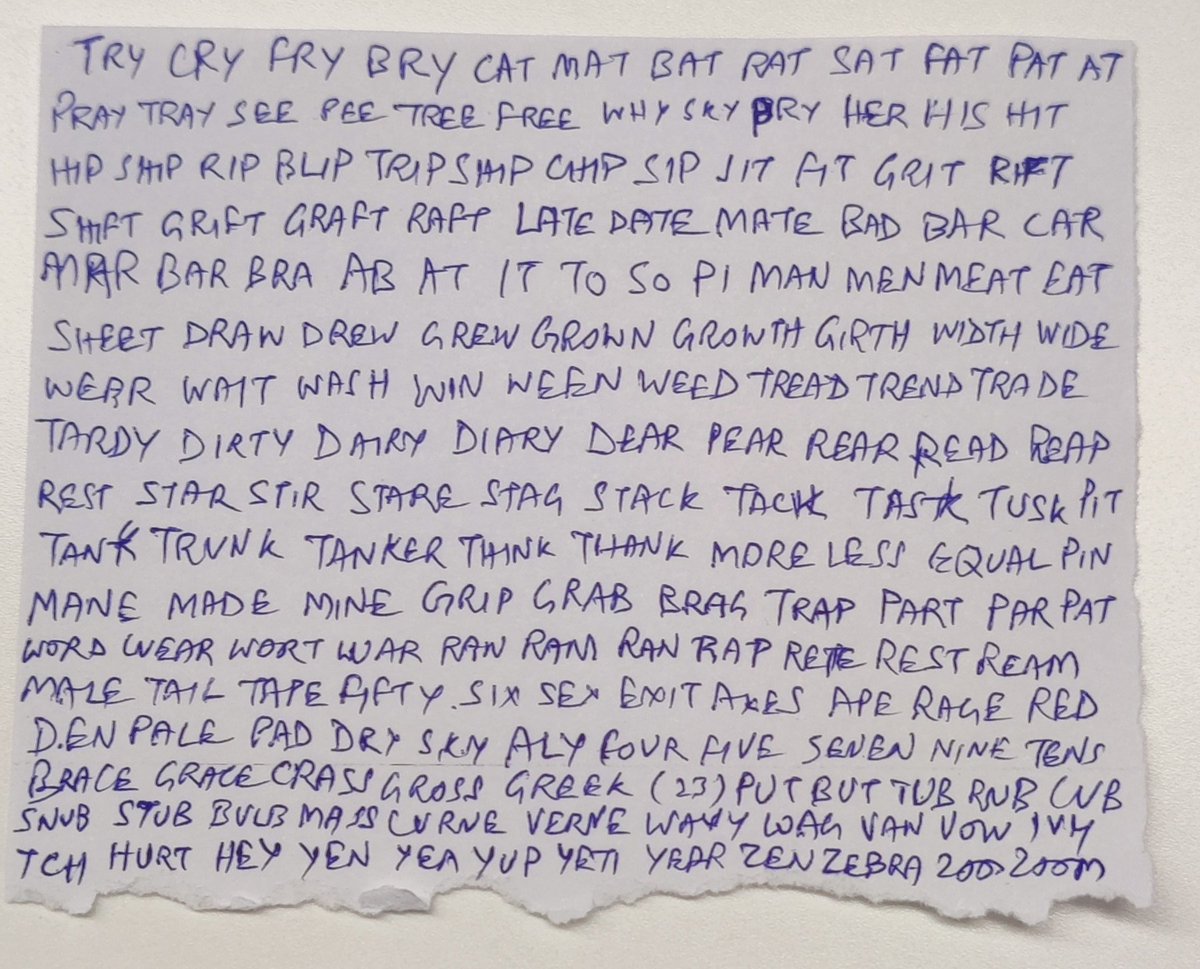 TRY CRY FRY BRY CAT MAT BAT RAT SAT FAT PAT AT
PRAY TRAY SEE PEE TREE FREE WHY SKY BRY HER HIS HIT
HIP SHIP RIP BLIP TRIP SHIP CHIP SIP SIT FIT GRIT RIFT
SHIFT GRIFT GRAFT RAFT LATE DATE MATE BAD BAR CAR
MAR BAR BRA AB AT IT TO SO PI MAN MEN MEAT EAT
SHEET DRAW DREW GREW GROWN GROWTH GIRTH WIDTH WIDE
WEAR WAIT WASH WIN WEEN WEED TREAD TREND TRADE
TARDY DIRTY DAIRY DIARY DEAR PEAR REAR READ REAP
REST STAR STIR STARE STAG STACK TACK TASK TUSK PIT
TANK TRUNK TANKER THINK THANK MORE LESS EQUAL PIN
MANE MADE MINE GRIP GRAB BRAG TRAP PART PAR PAT
WORD WEAR WORT WAR RAN RAM RAN RAP REST REAM
MALE TAIL TAPE FIFTY SIX SEX EXIT AXES APE RAGE RED
DEN PALE PAD DRY SKY ALY FOUR FIVE SEVEN NINE TENS
BRACE GRACE CRASS GROSS GREEK (23) PUT BUT TUB RUB CUB
SNUB STUB BULB MASS CURNE VERNE WAVY WAG VAN VOW IVY
TCH HURT HEY YEN YEA YUP YETI YEAR ZEN ZEBRA ZOO ZOOM